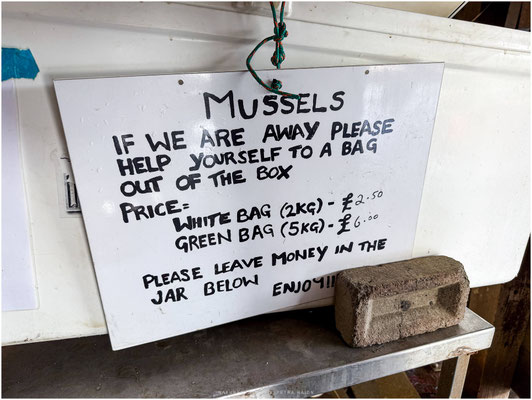 MUSSELS
IF WE ARE AWAY PLEASE
HELP YOURSELF TO A BAG
OUT OF THE BOX
PRICE=
WHITE BAG (2KG) - £2.50
GREEN BAG (5KG) - £6.00
PLEASE LEAVE MONEY IN THE
JAR BELOW ENJOY!!